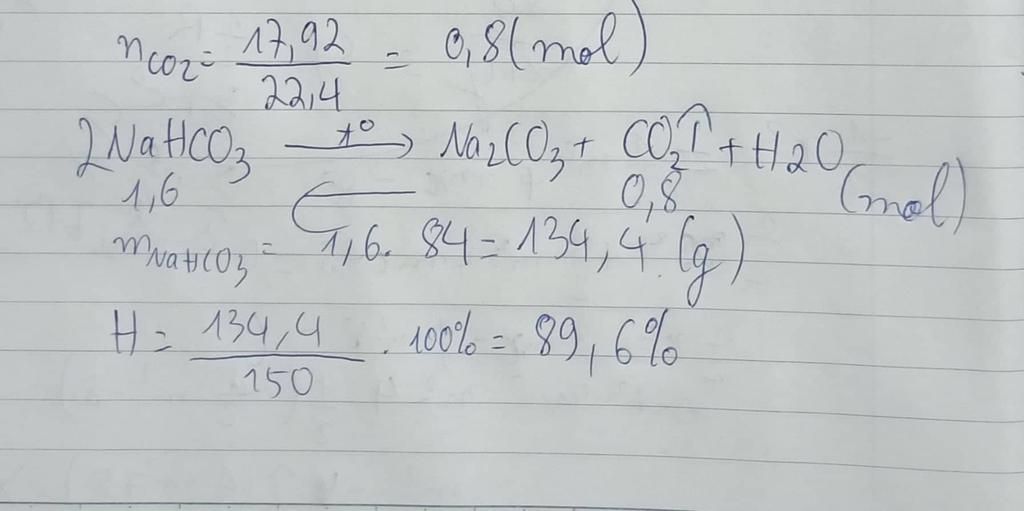 nCO2 = 17,92 / 22,4 = 0,8 (mol)
2NaHCO3 —t°→ Na2CO3 + CO2↑ + H2O
1,6 ← 0,8 (mol)
mNaHCO3 = 1,6 . 84 = 134,4 (g)
H = 134,4 / 150 . 100% = 89,6%